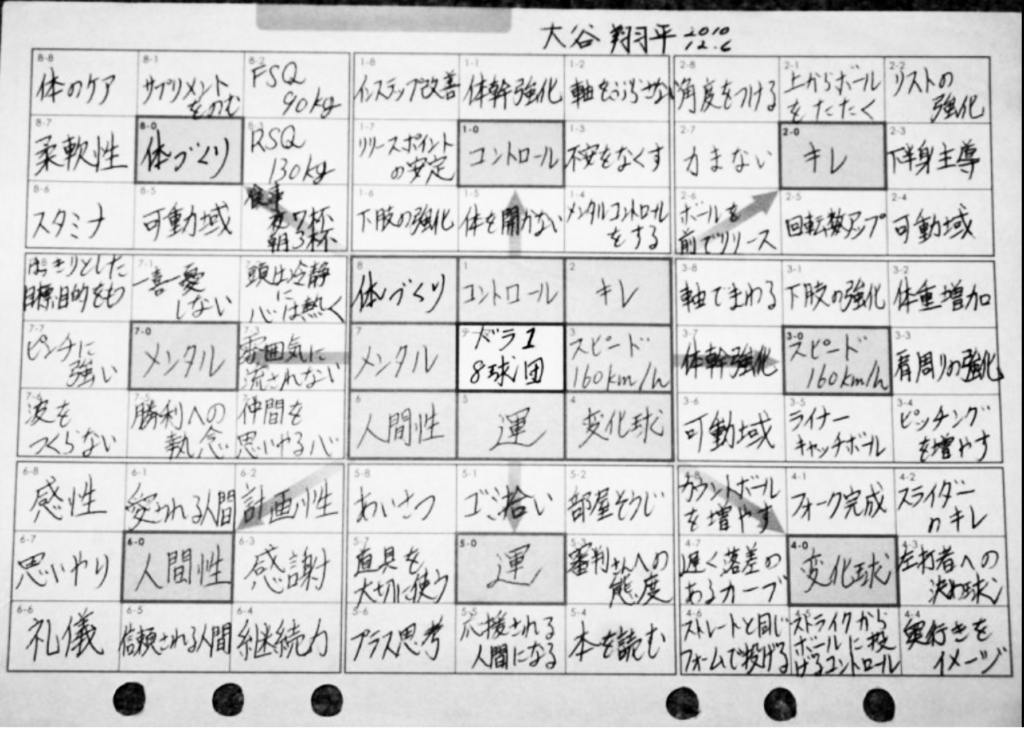 大谷 翔平 2010
12.6
8-8 8-1 8-2 1-8 1-1 1-2 2-8 2-1 2-2
体のケア サプリメント FSQ インステップ改善 体幹強化 軸をぶらさない 角度をつける 上からボール リストの
をのむ 90kg をたたく 強化
8-7 8-0 8-3 1-7 1-0 1-3 2-7 2-0 2-3
柔軟性 体づくり RSQ リリースポイント コントロール 不安をなくす 力まない キレ 下半身主導
130kg の安定
8-6 8-5 食事 1-6 1-5 1-4 2-6 2-5 2-4
スタミナ 可動域 夜7杯 下肢の強化 体を開かない メンタルコントロール ボールを 回転数アップ 可動域
朝3杯 をする 前でリリース
7-1 8 1 2 3-8 3-1 3-2
はっきりとした 一喜一憂 頭は冷静に 体づくり コントロール キレ 軸でまわる 下肢の強化 体重増加
目標、目的をもつ しない 心は熱く
7-7 7-0 7-3 7 3 3-7 3-0 3-3
ピンチに メンタル 雰囲気に メンタル ドラ1 スピード 体幹強化 スピード 肩周りの強化
強い 流されない 8球団 160km/h 160km/h
7-6 7-5 7-4 6 5 4 3-6 3-5 3-4
波を 勝利への 仲間を 人間性 運 変化球 可動域 ライナー ピッチング
つくらない 執念 思いやる心 キャッチボール を増やす
6-8 6-1 6-2 5-8 5-1 5-2 4-8 4-1 4-2
感性 愛される人間 計画性 あいさつ ゴミ拾い 部屋そうじ カウントボール フォーク完成 スライダー
を増やす のキレ
6-7 6-0 6-3 5-7 5-0 5-3 4-7 4-0 4-3
思いやり 人間性 感謝 道具を 運 審判さんへの 遅く落差の 変化球 左打者への
大切に使う 態度 あるカーブ 決め球
6-6 6-5 6-4 5-6 5-5 5-4 4-6 4-5 4-4
礼儀 信頼される人間 継続力 プラス思考 応援される 本を読む ストレートと同じ ストライクから 奥行きを
人間になる フォームで投げる ボールに投 イメージ
げるコントロール